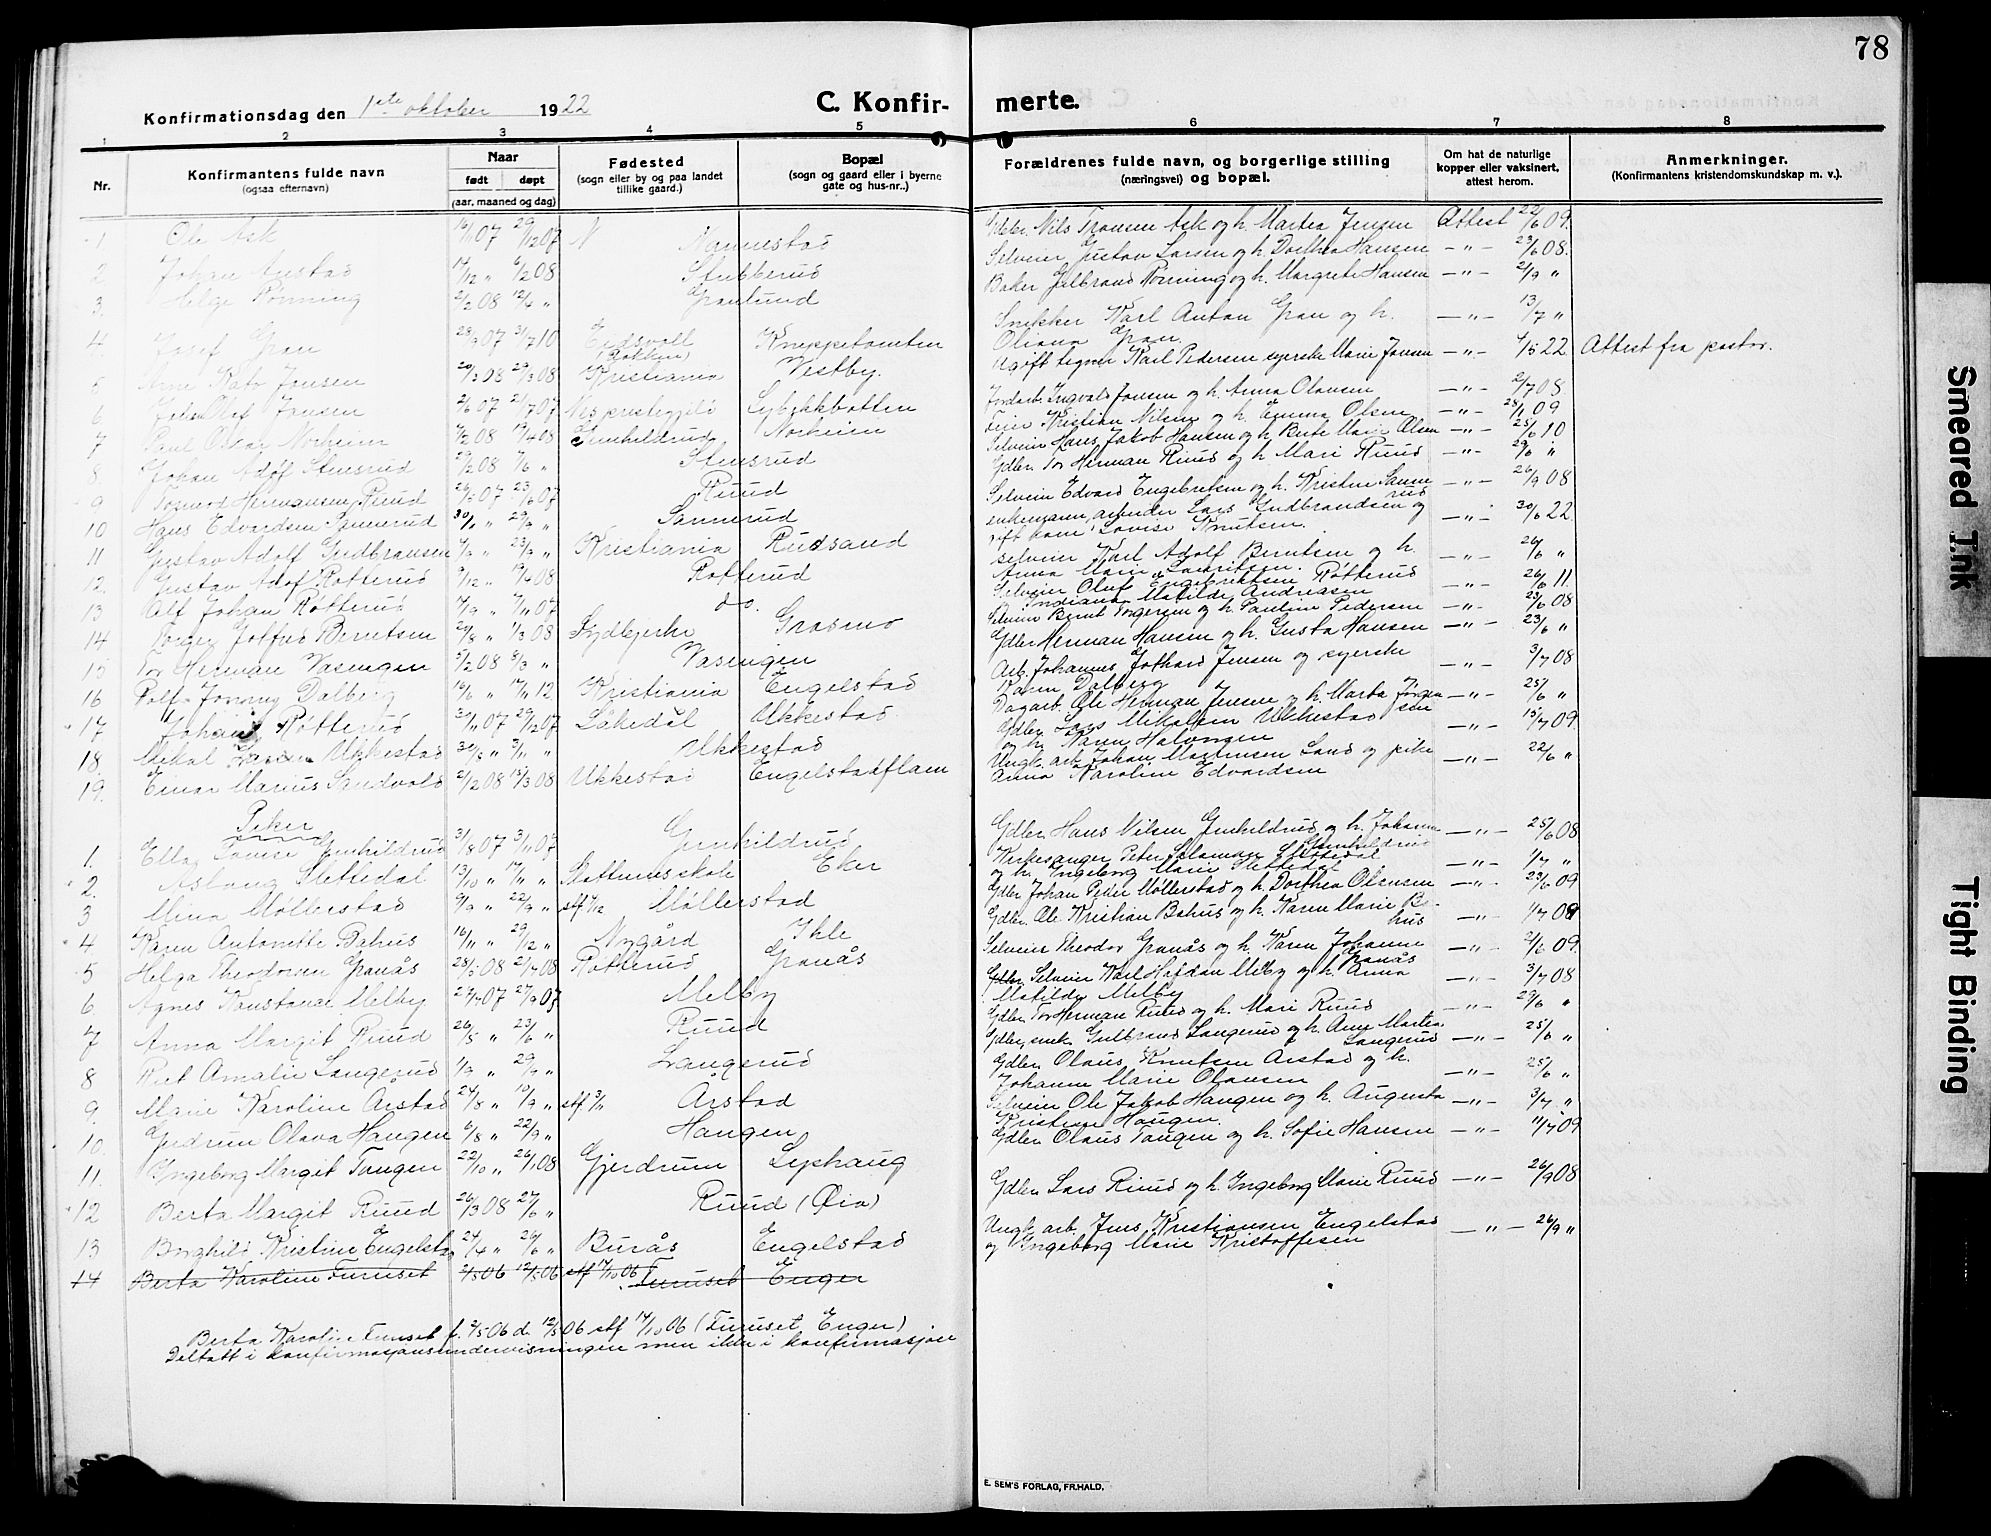 78
Konfirmationsdag den 1ste oktober 1922
C. Konfir-
merte.
1 2 3 4 5 6 7 8
Nr.
Konfirmantens fulde navn
(ogsaa efternavn)
Naar
født døpt
(aar, maaned og dag)
Fødested
(sogn eller by og paa landet
tillike gaard.)
Bopæl
(sogn og gaard eller i byerne
gate og hus-nr..)
Forældrenes fulde navn, og borgerlige stilling
(næringsvei) og bopæl.
Om hat de naturlige
kopper eller vaksinert,
attest herom.
Anmerkninger.
(Konfirmantens kristendomskundskap m. v.).
1 Ole Ask 29/12 07 Nannestad Nils Ask og h. Martea Jensen Attest 22/6 09.
2 Johan 14/12 " 6/2 08 Stubberud Selveier Gustav Larsen og h. Dorthea Hansen -"- 23/6 08.
3. Helge Rønning 2/2 08 12/4 " Granlund Baker Gulbrand Rønning og h. Margrete Hansen -"- 2/9 "
4 Josef Gran 28/9 07 3/7 10 Eidsvoll Kneppetomten Snikker Karl Anton Gran og h.
Oliana Gran. -"- 13/7 "
5 Arne Jensen 20/3 08 29/3 08 Kristiania Vestby. Ugift Karl Pedersen syerske Marie Jensen -"- 4/5 22 Attest fra pastor.
6 Johan Olaf Jensen 2/6 07 21/7 07 Nes prestegjeld Ingvald Jensen og h. Anna Olausen -"- 2/7 08
7 Paul Oscar Norheim 4/2 08 19/4 08 Norheim Feier Kristian Nilsen og h. Emma Olsen -"- 28/1 09
8 Johan Adolf Stensrud 29/2 08 7/6 " Stensrud Selveier Hans Jakob Hansen og h. Berte Marie Olsen -"- 25/6 10
9 Hermansen Ruud 26/5 07 23/6 07 Ruud Gdler. Tor Herman Ruud og h. Mari Ruud -"- 29/6 "
10 Hans Edvardsen Sannerud 30/11 " 29/9 " Sannerud Selveier Edvard Engebretsen og h. Kristin Sanne
rud -"- 26/9 08
11 Gustav Adolf Gudbransen 4/9 " 23/9 " Kristiania Rudsand enkemann, arbeider Lars Gudbrandsen og
gift kone Lovise Knutsen. -"- 30/6 22
12. Gustav Adof Rotterud 9/12 " 19/4 08 Rotterud selveier Karl Adolf Berntsen og h.
Anna Marie Lauritsen. -"- 26/6 "
13 Alf Johan Røtterud 14/9 " 7/11 07 do. Selveier Oluf Engebretsen Røtterud
Indiana Matilde Andreasen -"- 26/6 11.
14 Gotfred Berntsen 24/8 " 1/3 08 Grasmo Selveier Bernt Torgersen og h. Pauline Pedersen -"- 23/6 08
15 Tor Herman Vasengen 5/2 08 8/3 " Vasengen Gdler Herman Hansen og h. Gusta Hansen -"- 23/6 "
16 Rolf Dalberg 16/6 " 17/11 12 Kristiania Engelstad Arb. Johannes Gothard Jensen og syerske
Karen Dalberg -"- 3/7 08
17 Johan Røtterud 30/11 07 29/12 07 Ukkestad Dagarb. Ole Herman Jensen og h. Marta Jørgen
sen -"- 25/6 "
18. Mikal Larsen Ukkestad 30/8 " 3/11 " Ukkestad Gdler Lars Mikalsen Ukkestad
og h. Karen Halvorsen -"- 15/7 09.
19. Einar Marius Sandvold 2/2 08 15/3 08 Ukkestad Engelstadflaen Ungk. arb. Johan Martinsen Sand og pike
Anna Karoline Edvardsen -"- 22/6 "
Piker
1. Ella Lovise Gunhildrud 31/8 07 3/11 07 Gunhildrud Gdler. Hans Nilsen Gunhildrud og h. Johanne
Gunhildrud -"- 25/6 08
2. Aslaug Slettedal 13/10 " 17/11 " skole Eker Kirkesanger Peter Salamon Slettedal
og h. Ingeborg Marie Slettedal -"- 1/7 "
3 Mina Møllerstad 9/9 " 22/9 " stf Møllerstad Gdler Johan Peder Møllerstad og h. Dorthea Olausen -"- 23/6 09
4 Karen Antonette Bahus 16/11 " 29/12 " Nygård Ihle Gdler. Ole Kristian Bahus og h. Karen Marie Ba-
hus -"- 1/7 09
5 Helga Theodorsen Granås 28/5 08 21/7 08 Rotterud Granås Selveier Theodor Granås og h. Karen Johanne
Granås -"- 2/6 09.
6 Agnes Konstanse Melby 24/7 07 27/9 07 Melby Gdler. Selveier Karl Hafdan Melby og h. Anna
Matilde Melby -"- 3/7 08
7 Anna Margit Ruud 26/5 " 23/6 " Ruud Gdler. Tor Herman Ruud og h. Mari Ruud -"- 29/6 "
8 Amalie Langerud 1/9 " 29/9 " Langerud Gdler, snek. Gulbrand Langerud og h. Ane Martea
Langerud -"- 25/6 "
9. Marie Karoline Arstad 24/8 " 10/9 " stf 3/11 Arstad Gdler. Olaus Knutsen Arstad og h.
Johanne Marie Olausen -"- 25/6 "
10. Gudrun Olava Haugen 6/8 " 22/9 " Haugen Selveier Ole Jakob Haugen og h. Augusta
Kristiane Haugen. -"- 3/7 "
11. Ingeborg Margit Tangen 22/10 " 26/1 08 Gjerdrum Lyshaug Gdler Olaus Tangen og h. Sofie Hansen -"- 11/7 09
12 Berta Margit Ruud 26/3 08 27/6 " Ruud (Øia) Gdler. Lars Ruud og h. Ingeborg Marie Ruud -"- 26/9 08
13 Borghild Kristine Engelstad 24/4 " 26/6 " Burås Engelstad Ungk. arb. Jens Kristiansen Engelstad
og Ingeborg Marie Kristoffersen -"- 26/9 "
14 Berta Karoline Furuset 2/5 06 12/5 06 stf 14/10 06 Furuset Enger
Berta Karoline Furuset f. 2/5 06 d. 12/5 06 stf 14/10 06 (Furuset, Enger)
Deltatt i konfirmasjonsundervisningen men ikke i konfirmasjonen
E. SEM'S FORLAG, FR.HALD.
Smeared Ink
Tight Binding